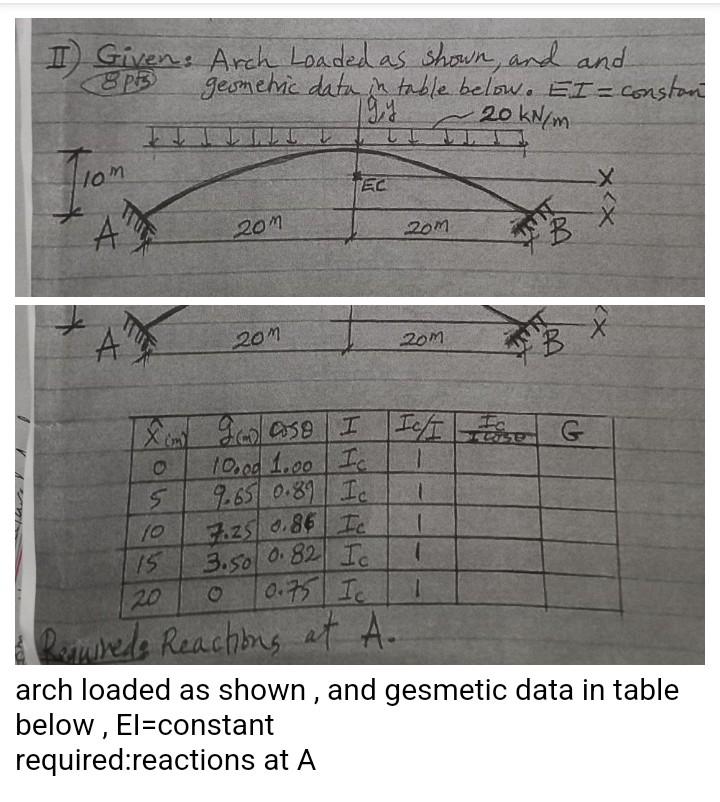 II) Given: Arch Loaded as shown, and and
8 pts geometric data in table below. EI = constan
ĝ,y 20 kN/m
10 m
EC X
A 20 m 20 m B x̂
A 20 m 20 m B x̂
x̂(m) ĝ(m) cosθ I Ic/I Ic/I cosθ G
0 10.00 1.00 Ic 1
5 9.65 0.89 Ic 1
10 7.25 0.86 Ic 1
15 3.50 0.82 Ic 1
20 0 0.75 Ic 1
Required: Reactions at A.
arch loaded as shown , and gesmetic data in table
below , EI=constant
required:reactions at A